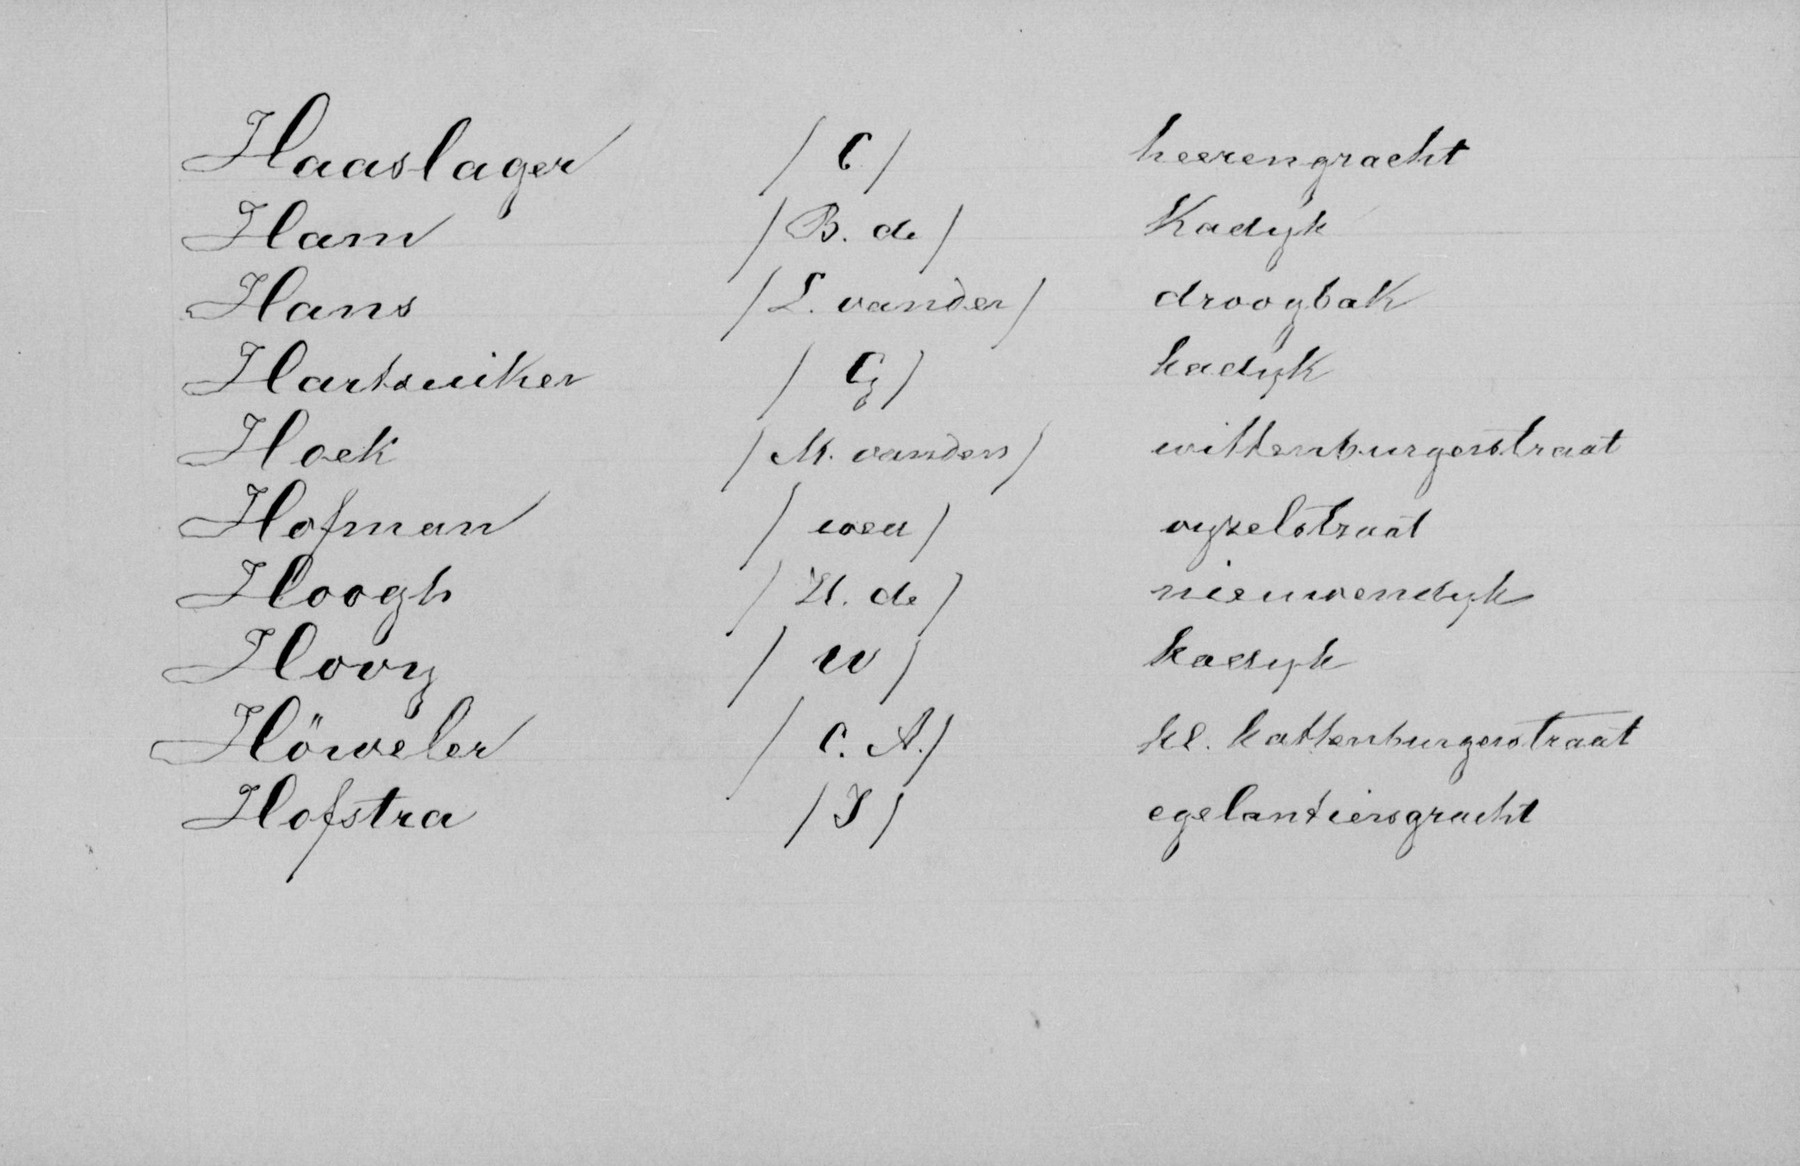 Haaslager / C / heerengracht
Ham / B. de / Kadyk
Hans / L. vander / droogbak
Hartsuiker / G / kadyk
Hoek / M. vanden / wittenburgerstraat
Hofman / wed / vyzelstraat
Hoogh / H. de / nieuwendyk
Hovy / W / kadyk
Höweler / C. A. / kl. kattenburgerstraat
Hofstra / J / egelantiersgracht